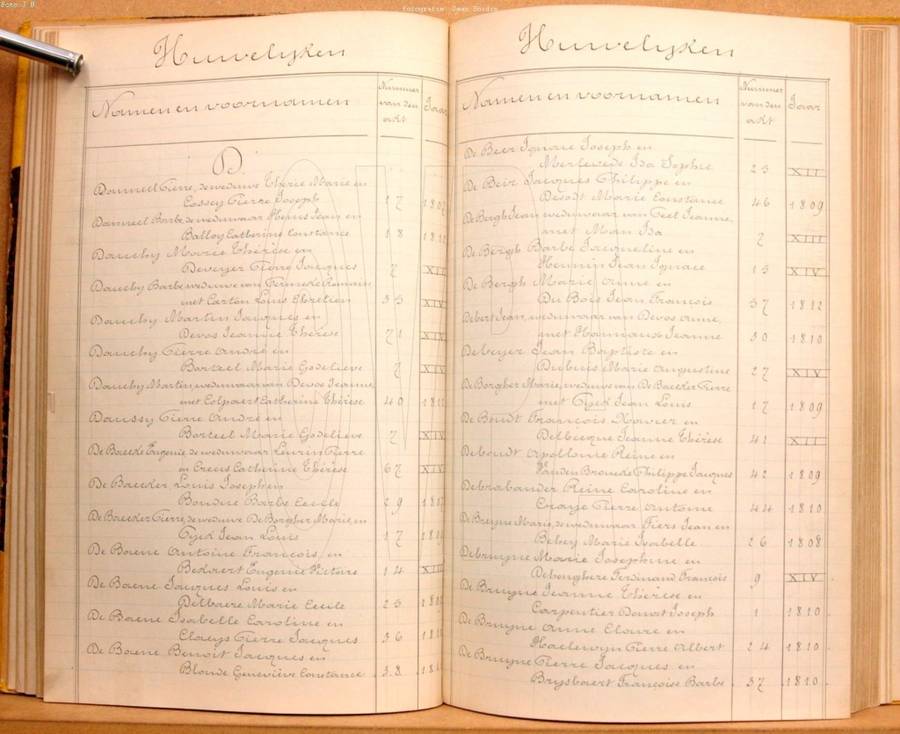 Foto J.B.
Fotografie: Jean Bordin
Huwelijken
Namen en voornamen
Nummer van den akt
Jaar
D.
Danneel Pierre, de weduwe Thérèse Marie en
Cossey Pierre Joseph 17
Danneel Barbe, de weduwaar Jean en
Balloy Catherine Constance 18
Dauchy Marie Thérèse en
Deveyer Pierre Jacques 7 XII
Dauchy Barbe, weduwe van Romain
met Carton Louis Chrétien 33 XIV
Dauchy Martin Jacques en
Devos Jeanne Thérèse 71 XIV
Dauchy Pierre André en
Barteel Marie Godelieve 7 XIV
Dauchy Marten, weduwnaar van Devos Jeanne
met Colpaert Catherine Thérèse 40
Daussy Pierre André en
Barteel Marie Godelieve 7 XIV
De Baecke Eugenie, de weduwaar Leurin Pierre
en Catherine Thérèse 67 XIV
De Baecker Louis Joseph en
Boudre Barbe Cecile 29
De Baecker Pierre, de weduwe De Borgher Marie, en
Gyed Jean Louis 17
De Baene Antoine François, en
Beddert Eugenie Victoire 14
De Baene Jacques Louis en
Delbaere Marie Cecile 23
De Baene Isabelle Caroline en
Claeys Pierre Jacques 36
De Baene Benoit Jacques en
Blonde Geneviève Constance 38
Huwelijken
Namen en voornamen
Nummer van den akt
Jaar
De Beer Ignace Joseph en
Merlevede Ida Sophie 23 XII
De Beir Jacques Philippe en
Desodt Marie Constance 46 1809
De Bergh Jean, weduwaar van Geel Jeanne,
met Man Ida 7 XIII
De Bergh Barbe Jacqueline en
Hennin Jean Ignace 13 XIV
De Bergh Marie Anne en
Du Bois Jean François 37 1812
Debert Jean, weduwnaar van Devos Anne,
met Hannaux Jeanne 30 1810
Debeyer Jean Baptiste en
Dubuis Marie Augustine 27 XIV
De Borgher Marie, weduwe van De Baecker Pierre
met Gyed Jean Louis 17 1809
De Boudt François Xavier en
Delbecque Jeanne Thérèse 41 XII
Deboudt Apolline Reine en
Vanden Broucke Philippe Jacques 42 1809
Debrabander Reine Caroline en
Craye Pierre Antoine 44 1810
De Bruyne Marie, de weduwaar Fiers Jean en
Behey Marie Isabelle 26 1808
Debruyne Marie Josephine en
Debeughere Ferdinand François 9 XIV
De Bruyne Jeanne Thérèse en
Carpentier Donat Joseph 1 1810
De Bruyne Anne Claire en
Haelewyn Pierre Albert 24 1810
De Bruyne Pierre Jacques en
Brysbaert Françoise Barbe 37 1810